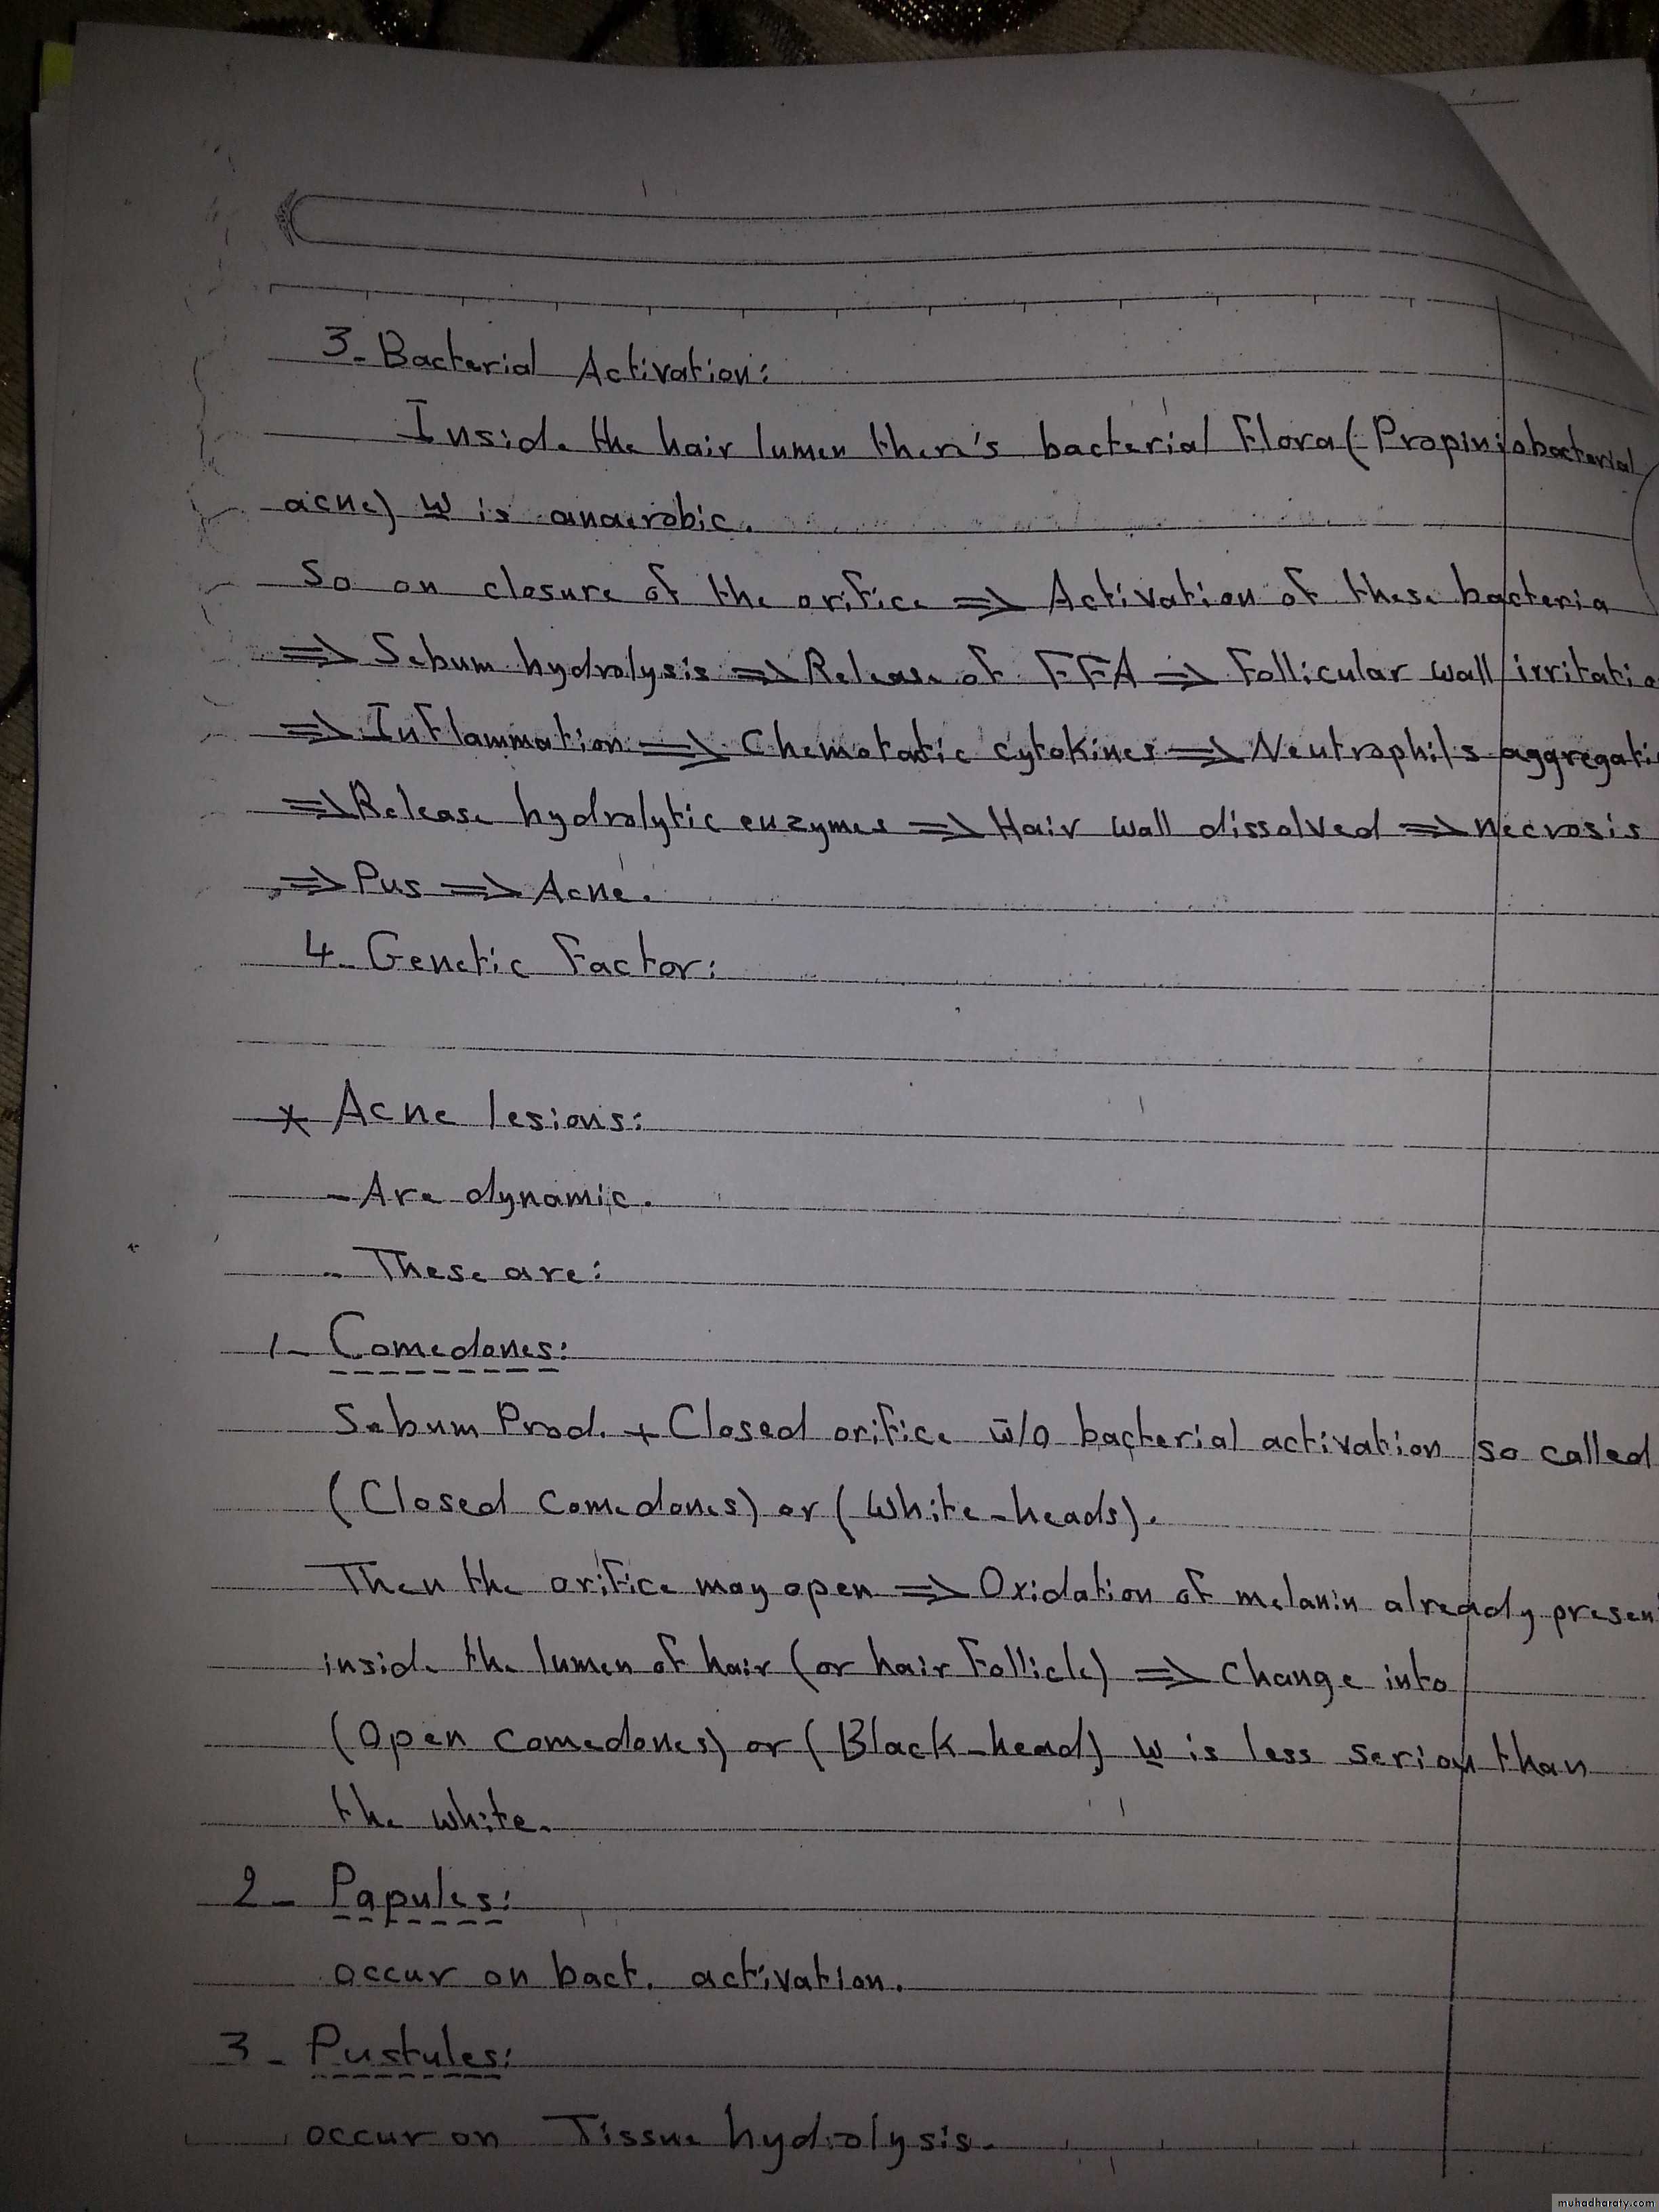 3- Bacterial Activation:
Inside the hair lumen there's bacterial flora (Propiniobacterial
acne) w is anaerobic.
So on closure of the orifice ⇒ Activation of these bacteria
⇒ Sebum hydrolysis ⇒ Release of FFA ⇒ Follicular wall irritatio
⇒ Inflammation ⇒ Chemotatic cytokines ⇒ Neutrophils aggregati
⇒ Release hydrolytic enzymes ⇒ Hair wall dissolved ⇒ necrosis
⇒ Pus ⇒ Acne.
4- Genetic Factor:
* Acne lesions:
- Are dynamic.
- These are:
1- Comedones:
Sebum Prod. + Closed orifice w/o bacterial activation so called
(Closed comedones) or (White-heads).
Then the orifice may open ⇒ Oxidation of melanin already presen
inside the lumen of hair (or hair follicle) ⇒ Change into
(Open comedones) or (Black-head) w is less serious than
the white.
2- Papules:
occur on bact. activation.
3- Pustules:
occur on Tissue hydrolysis.
muhadharaty.com